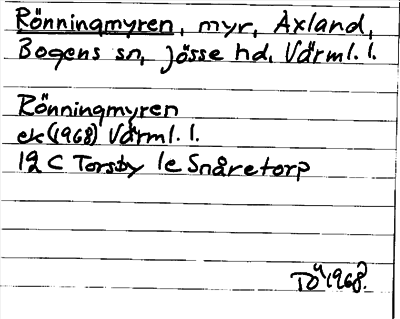 Rönningmyren, myr, Axland,
Bogens sn, Jösse hd, Värml. l.
Rönningmyren
ek (1968) Värml. l.
12 C Torsby 1e Snåretorp
1968.